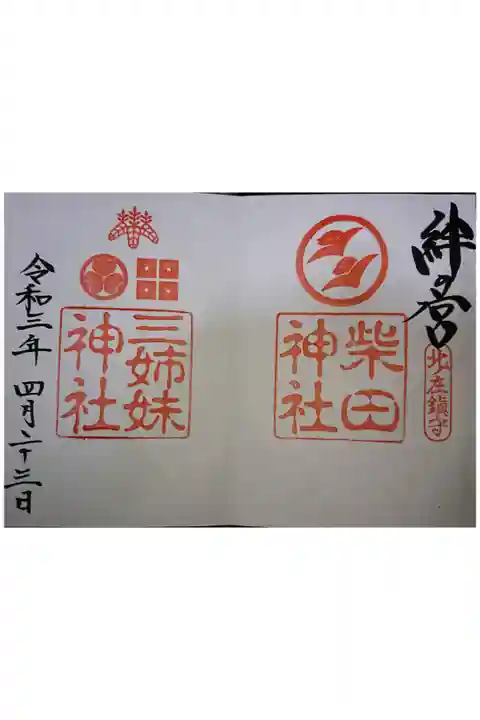 絆の宮
北庄鎮守
柴田
神社
三姉妹
神社
令和三年 四月二十三日